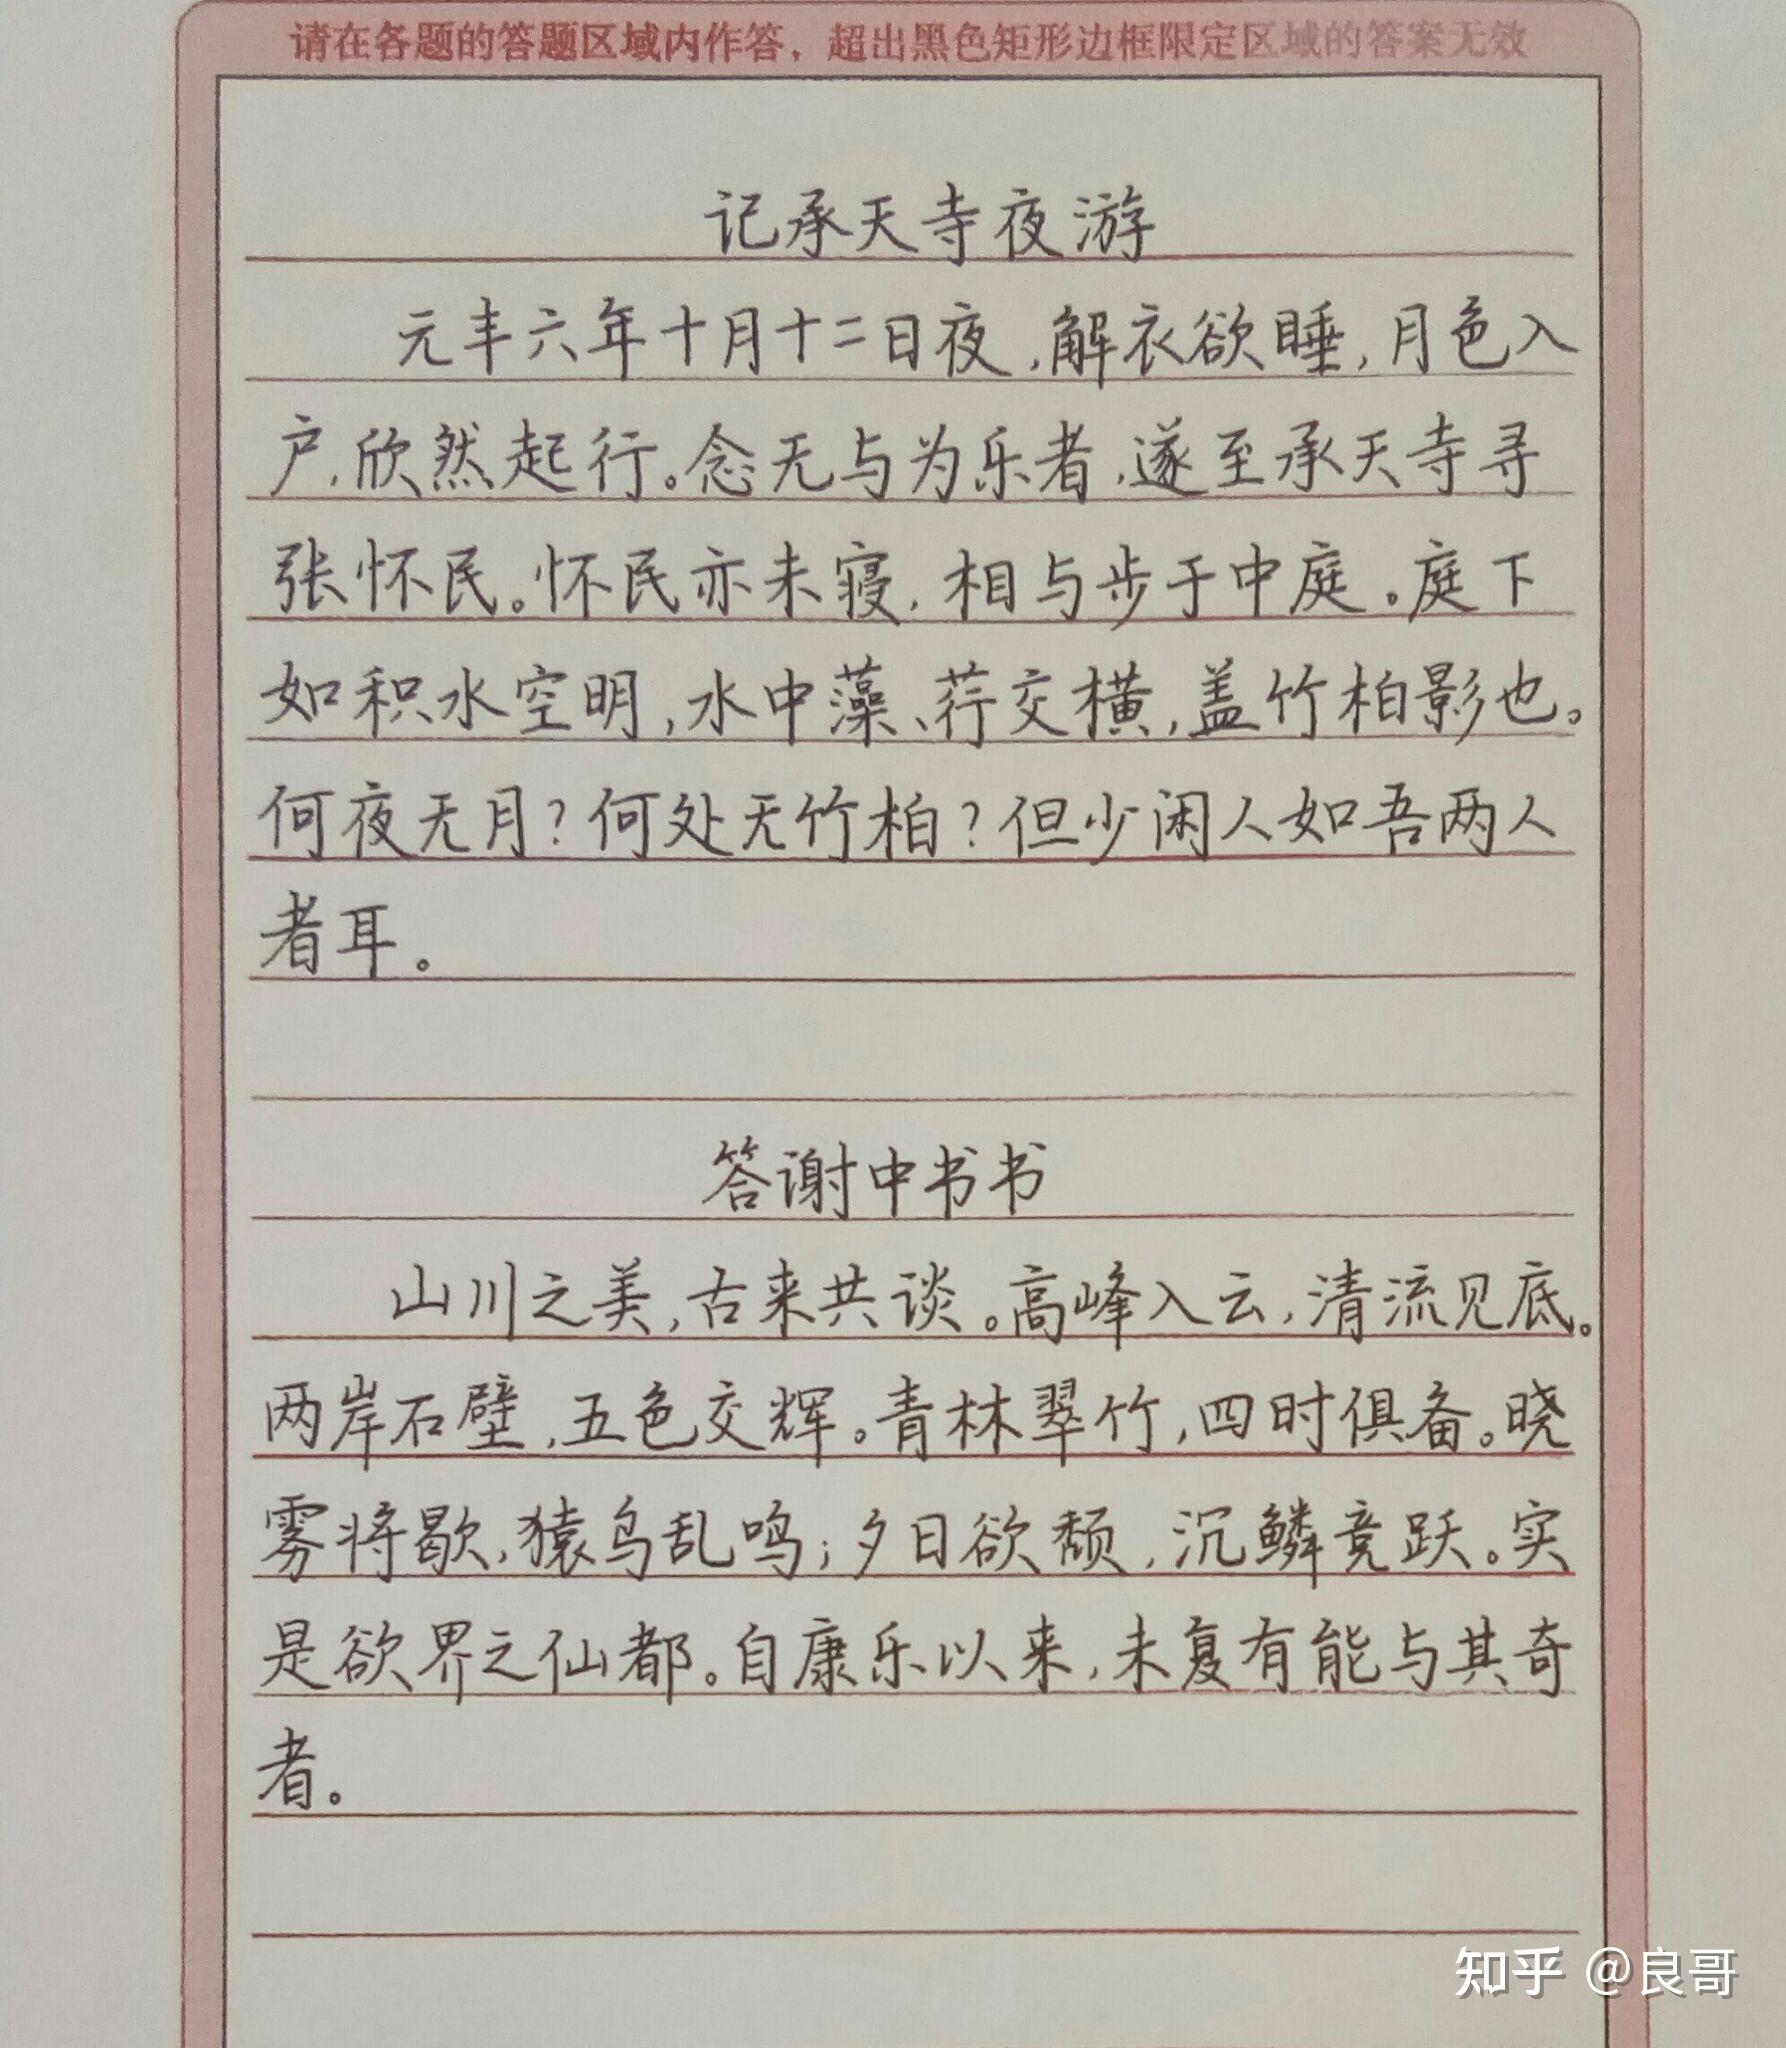 请在各题的答题区域内作答，超出黑色矩形边框限定区域的答案无效
记承天寺夜游
元丰六年十月十二日夜，解衣欲睡，月色入
户，欣然起行。念无与为乐者，遂至承天寺寻
张怀民。怀民亦未寝，相与步于中庭。庭下
如积水空明，水中藻、荇交横，盖竹柏影也。
何夜无月？何处无竹柏？但少闲人如吾两人
者耳。
答谢中书书
山川之美，古来共谈。高峰入云，清流见底。
两岸石壁，五色交辉。青林翠竹，四时俱备。晓
雾将歇，猿鸟乱鸣；夕日欲颓，沉鳞竞跃。实
是欲界之仙都。自康乐以来，未复有能与其奇
者。
知乎 @良哥